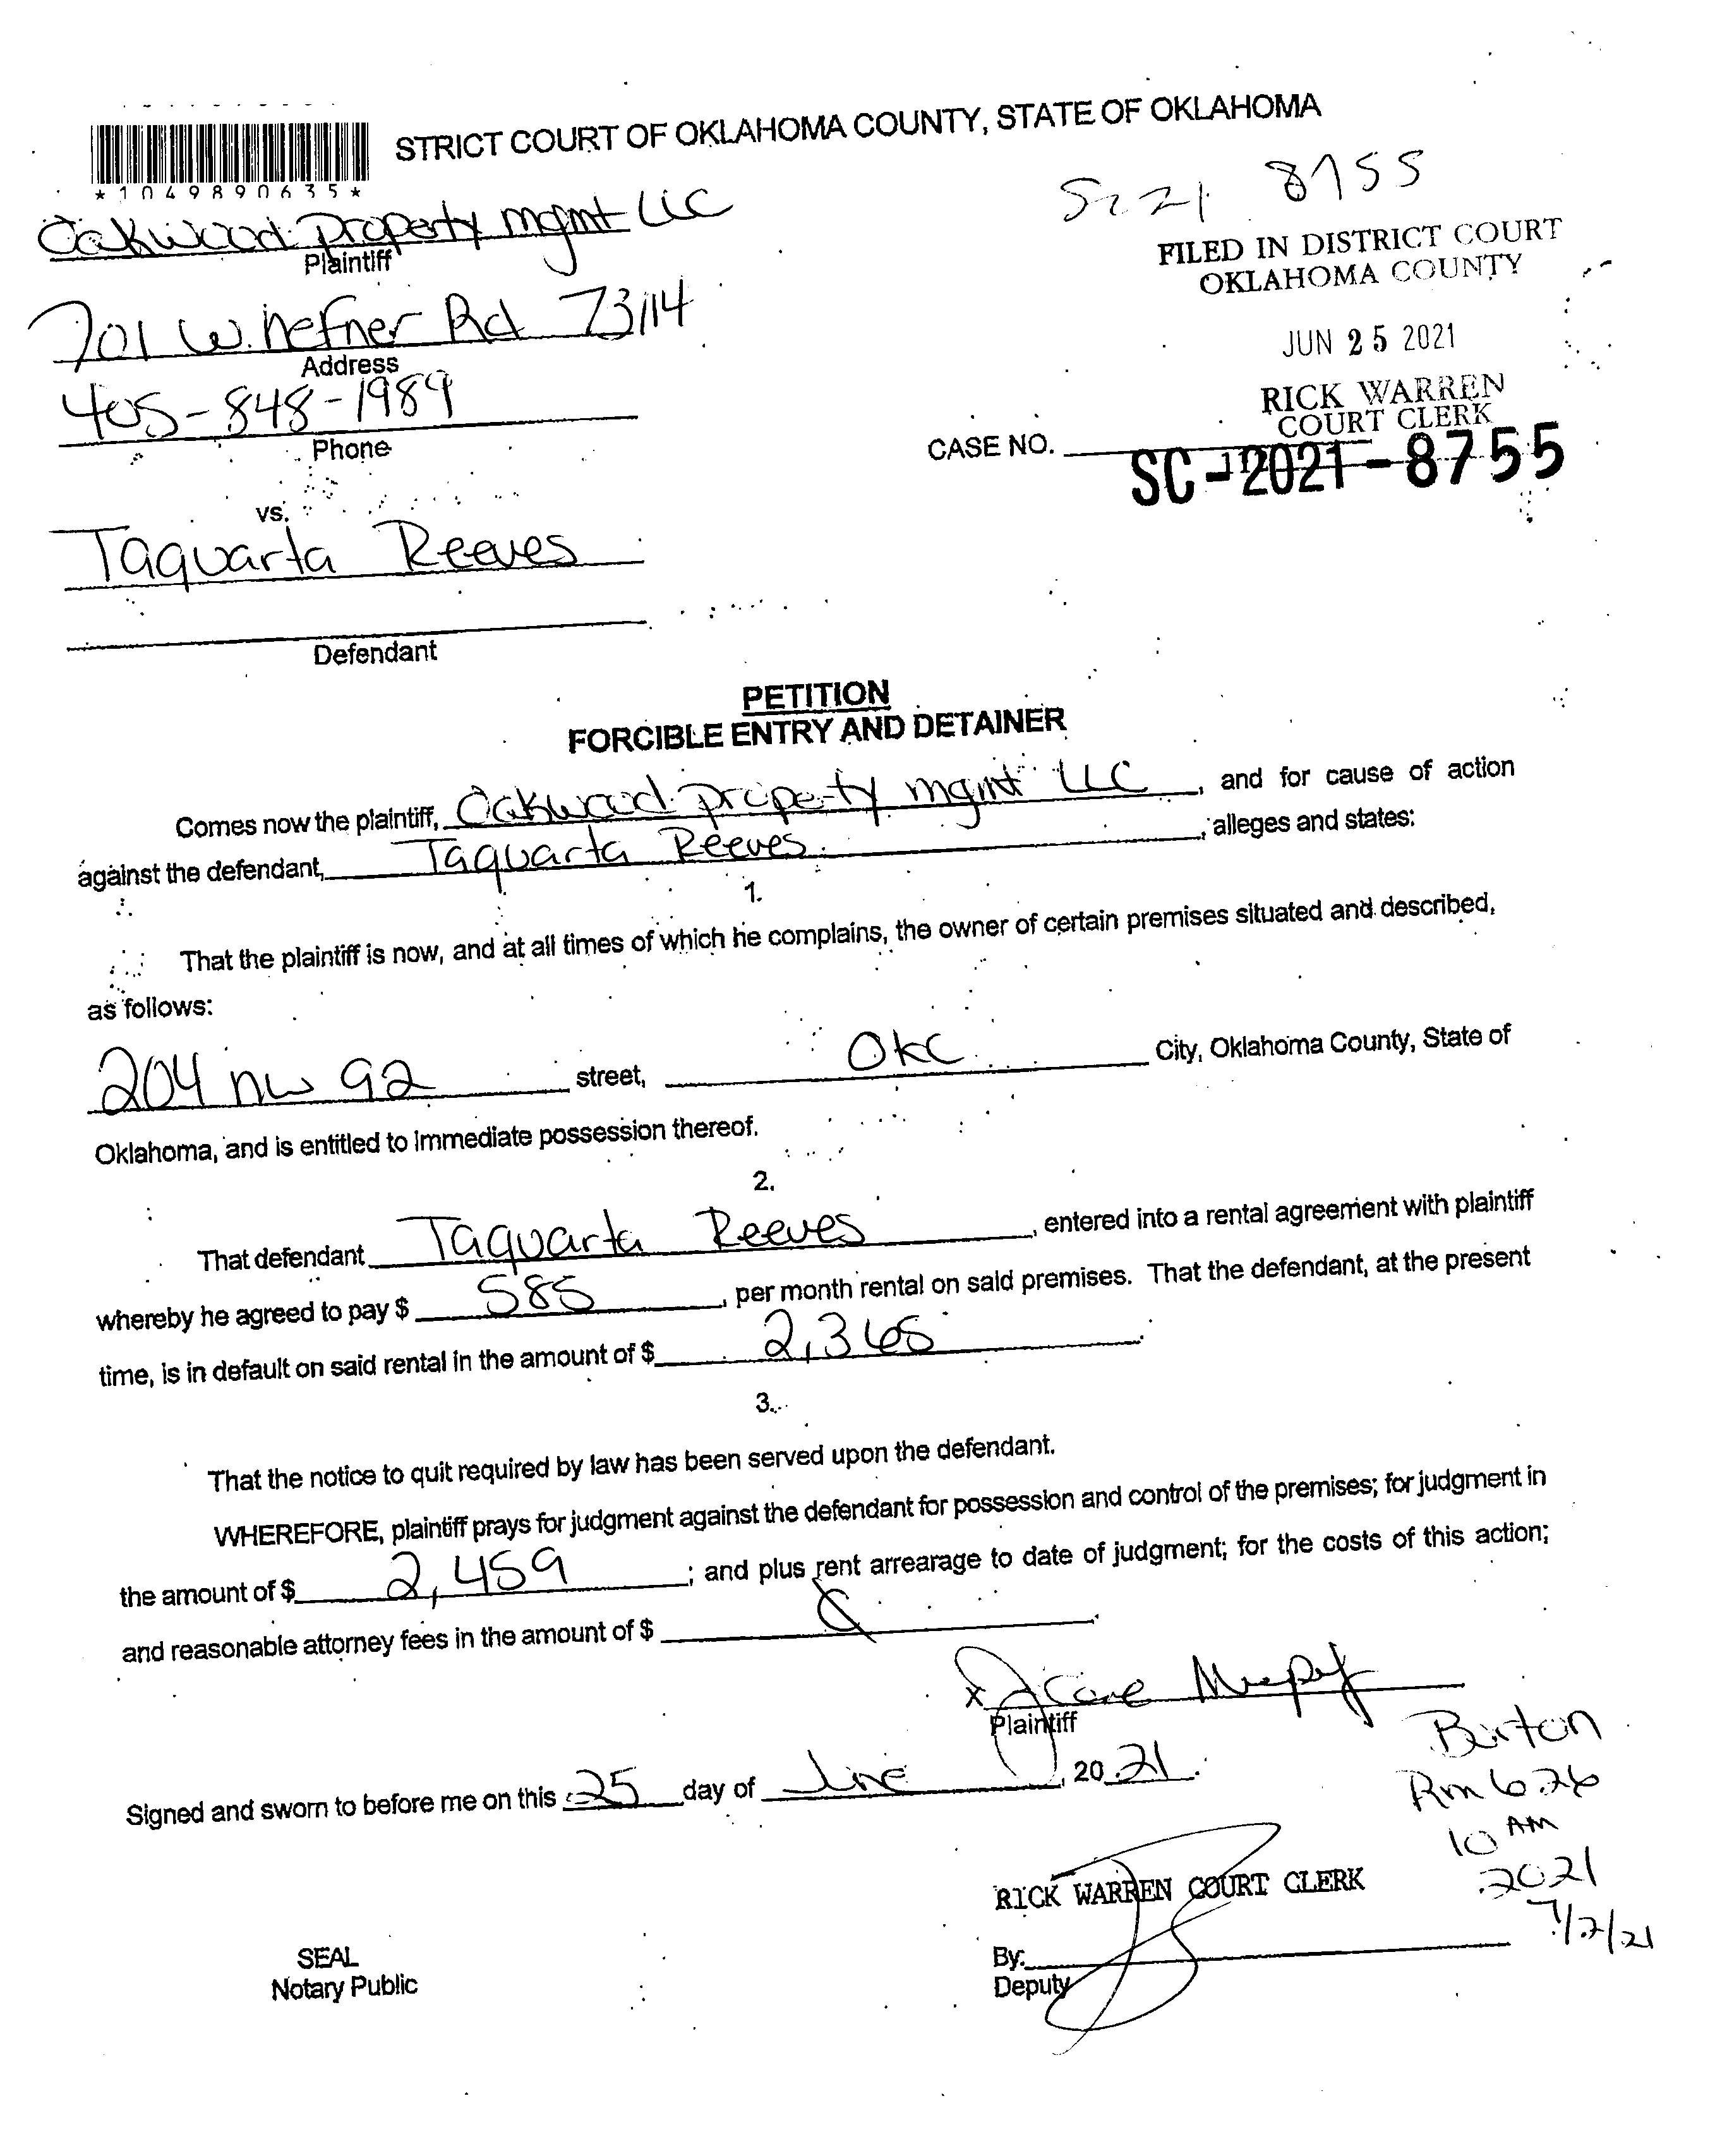 STRICT COURT OF OKLAHOMA COUNTY, STATE OF OKLAHOMA
*1049890635*
SC 21 8755
Oakwood Property mgmt LLC
Plaintiff
FILED IN DISTRICT COURT
OKLAHOMA COUNTY
701 W. Hefner Rd 73114
Address
JUN 25 2021
405-848-1989
Phone
RICK WARREN
COURT CLERK
CASE NO.
SC-2021-8755
vs.
Taquarta Reeves
Defendant
PETITION
FORCIBLE ENTRY AND DETAINER
Comes now the plaintiff, Oakwood property mgmt LLC, and for cause of action
against the defendant, Taquarta Reeves, alleges and states:
1.
That the plaintiff is now, and at all times of which he complains, the owner of certain premises situated and described,
as follows:
204 nw 92 street, OKC City, Oklahoma County, State of
Oklahoma, and is entitled to immediate possession thereof.
2.
That defendant Taquarta Reeves, entered into a rental agreement with plaintiff
whereby he agreed to pay $ 585, per month rental on said premises. That the defendant, at the present
time, is in default on said rental in the amount of $ 2,365.
3.
That the notice to quit required by law has been served upon the defendant.
WHEREFORE, plaintiff prays for judgment against the defendant for possession and control of the premises; for judgment in
the amount of $ 2,459; and plus rent arrearage to date of judgment; for the costs of this action;
and reasonable attorney fees in the amount of $
x
Plaintiff
Signed and sworn to before me on this 25 day of June, 20 21.
Burton
Rm 626
10 AM
2021
7/2/21
RICK WARREN COURT CLERK
By:
Deputy
SEAL
Notary Public